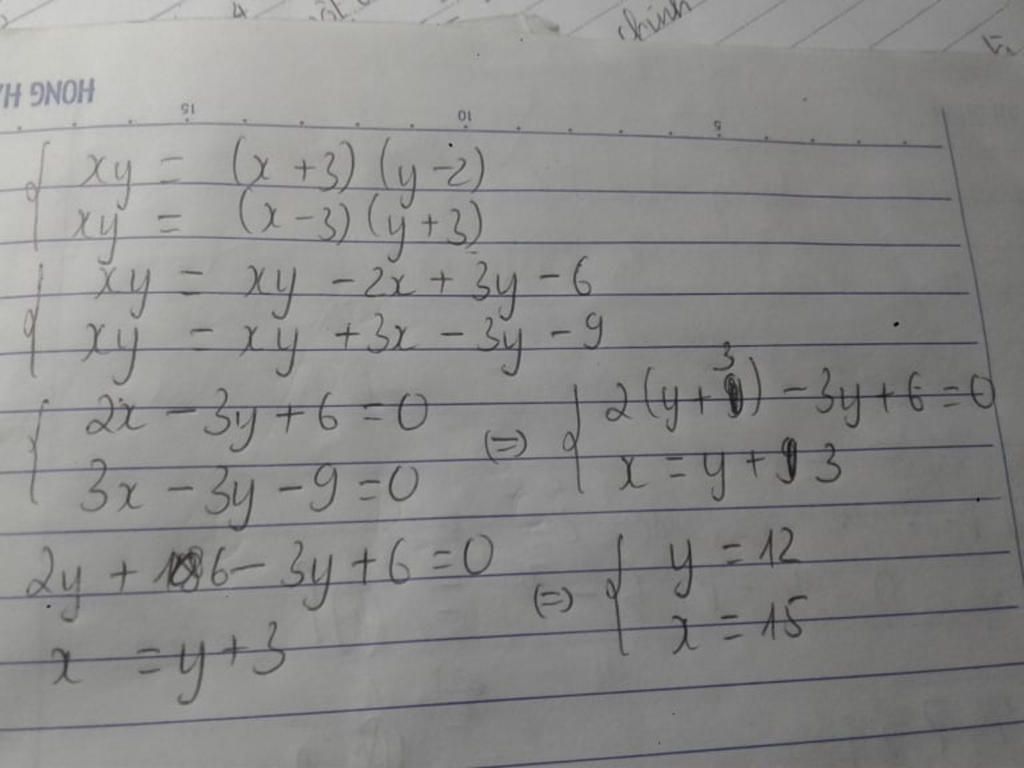 HONG H
15 10 5
xy = (x + 3) (y - 2)
xy = (x - 3) (y + 3)
xy = xy - 2x + 3y - 6
xy = xy + 3x - 3y - 9
2x - 3y + 6 = 0
3x - 3y - 9 = 0
(=) 2(y + 3) - 3y + 6 = 0
x = y + 3
2y + 6 - 3y + 6 = 0
x = y + 3
(=) y = 12
x = 15